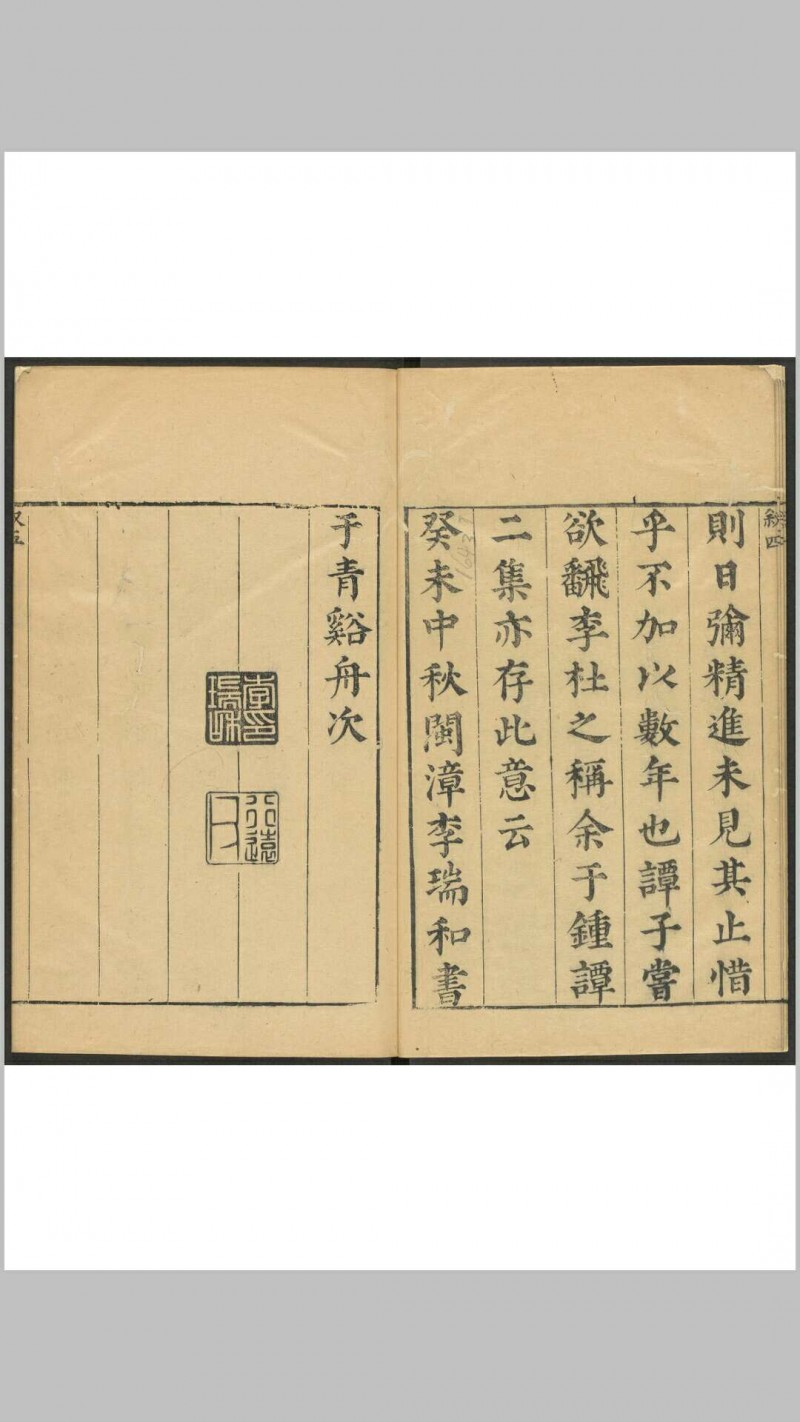 則日彌精進未見其止惜
乎不加以數年也譚子嘗
欲飜李杜之稱余于鍾譚
二集亦存此意云
癸未中秋閩漳李瑞和書
于青谿舟次
李印瑞和
行遠父